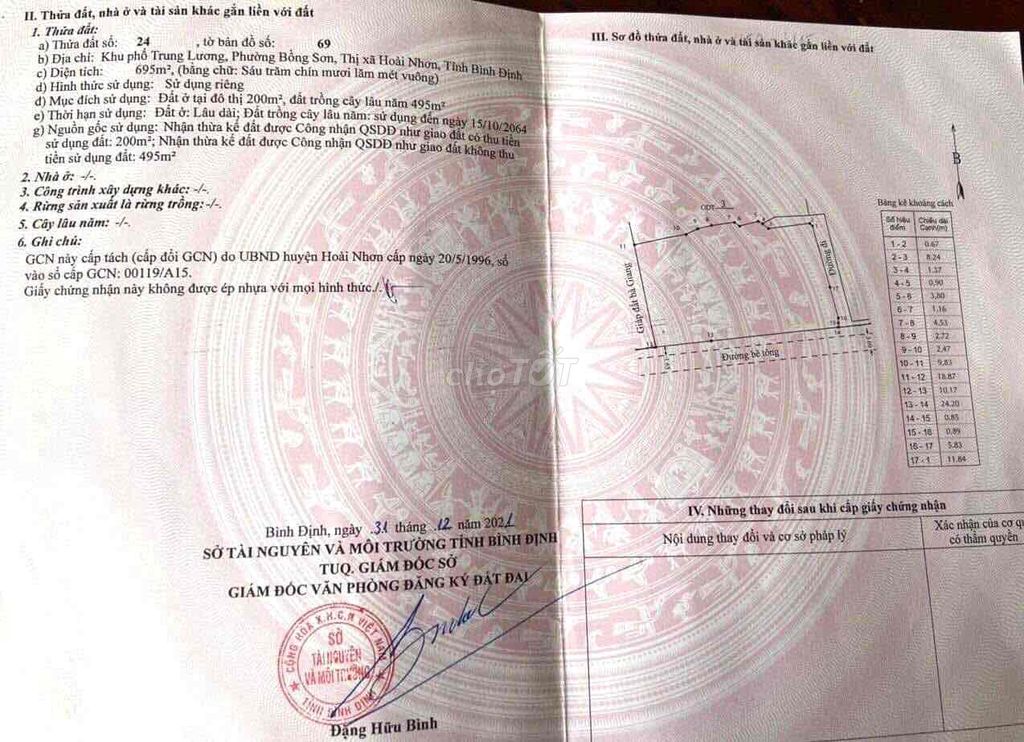 II. Thửa đất, nhà ở và tài sản khác gắn liền với đất
1. Thửa đất:
a) Thửa đất số: 24 , tờ bản đồ số: 69
b) Địa chỉ: Khu phố Trung Lương, Phường Bồng Sơn, Thị xã Hoài Nhơn, Tỉnh Bình Định
c) Diện tích: 695m², (bằng chữ: Sáu trăm chín mươi lăm mét vuông)
d) Hình thức sử dụng: Sử dụng riêng
đ) Mục đích sử dụng: Đất ở tại đô thị 200m², đất trồng cây lâu năm 495m²
e) Thời hạn sử dụng: Đất ở: Lâu dài; Đất trồng cây lâu năm: sử dụng đến ngày 15/10/2064
g) Nguồn gốc sử dụng: Nhận thừa kế đất được Công nhận QSDĐ như giao đất có thu tiền
sử dụng đất: 200m²; Nhận thừa kế đất được Công nhận QSDĐ như giao đất không thu
tiền sử dụng đất: 495m²
2. Nhà ở: -/-.
3. Công trình xây dựng khác: -/-.
4. Rừng sản xuất là rừng trồng: -/-.
5. Cây lâu năm: -/-.
6. Ghi chú:
GCN này cấp tách (cấp đổi GCN) do UBND huyện Hoài Nhơn cấp ngày 20/5/1996, số
vào sổ cấp GCN: 00119/A15.
Giấy chứng nhận này không được ép nhựa với mọi hình thức./.
Bình Định, ngày 31 tháng 12 năm 2021
SỞ TÀI NGUYÊN VÀ MÔI TRƯỜNG TỈNH BÌNH ĐỊNH
TUQ. GIÁM ĐỐC SỞ
GIÁM ĐỐC VĂN PHÒNG ĐĂNG KÝ ĐẤT ĐAI
CỘNG HOÀ X.H.C.N VIỆT NAM
SỞ
TÀI NGUYÊN
VÀ MÔI TRƯỜNG
TỈNH BÌNH ĐỊNH
Đặng Hữu Bình
choTỐT
III. Sơ đồ thửa đất, nhà ở và tài sản khác gắn liền với đất
B
ODT 3
10
11
1
17
16
Giáp đất bà Giang
Đường đi
12
13
14
Đường bê tông
Bảng kê khoảng cách
Số hiệu điểm Chiều dài Cạnh(m)
1 - 2 0.67
2 - 3 8.24
3 - 4 1.37
4 - 5 0.90
5 - 6 3.80
6 - 7 1.16
7 - 8 4.53
8 - 9 2.72
9 - 10 2.47
10 - 11 9.83
11 - 12 18.87
12 - 13 10.17
13 - 14 24.20
14 - 15 0.85
15 - 16 0.89
16 - 17 5.83
17 - 1 11.84
IV. Những thay đổi sau khi cấp giấy chứng nhận
Nội dung thay đổi và cơ sở pháp lý
Xác nhận của cơ qu
có thẩm quyền